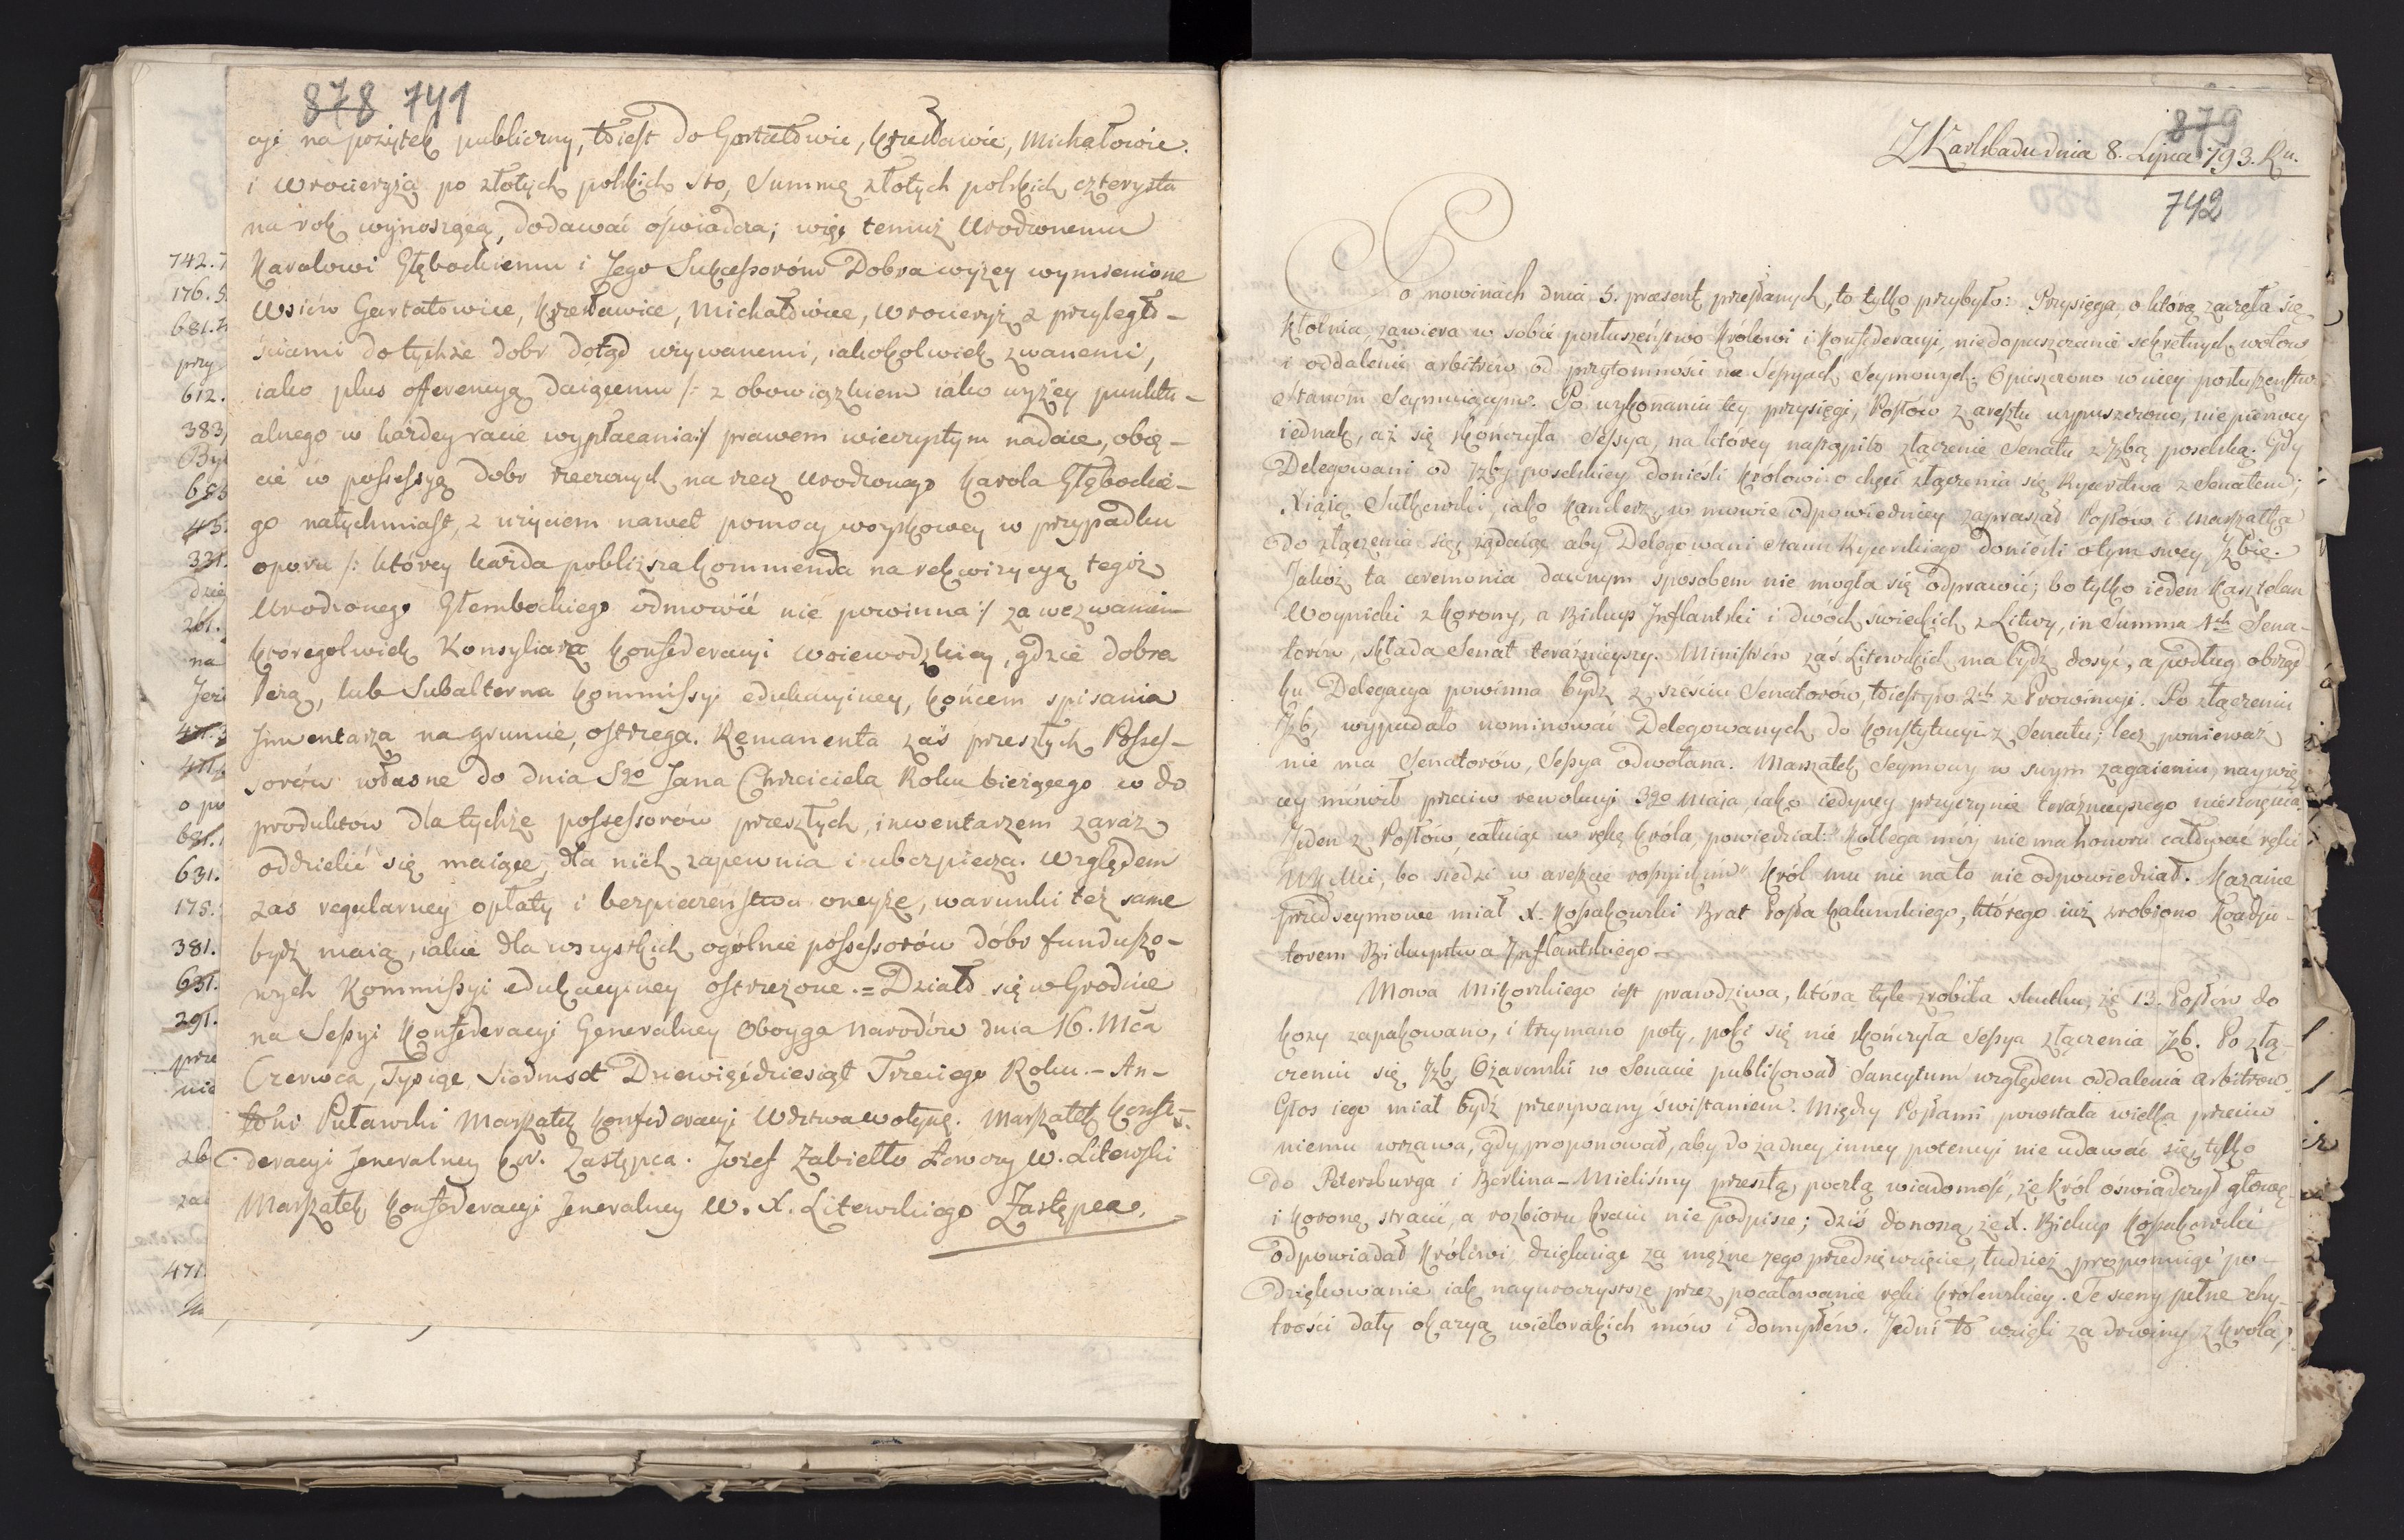 878 741
cyi na pożytek publiczny, to iest do Gartatowic, Krzesławic, Michałowic
i Wrocieryżą po złotych polskich sto, Summę złotych polskich czterysta
na rok wynoszącą, dodawać oświadcza; więc temuż Urodzonemu
Karolowi Głębockiemu i Jego Sukcessorom Dobra wyżey wymienione
Wsiów Gartatowice, Krzesławice, Michałowice, Wrocieryż z przyległo-
ściami do tychże dobr dotąd używanemi, iakokolwiek zwanemi,
iako plus offerencyą daiącemu /: z obowiązkiem iako wyżey punktu-
alnego w każdey racie wypłacania :/ prawem wieczystym nadaie, obię-
cie w possessyą dobr rzeczonych na rzecz Urodzonego Karola Głębockie-
go natychmiast, z użyciem nawet pomocy woyskowey w przypadku
oporu /: którey każda pobliższa kommenda na rekwizycyą tegoż
Urodzonego Głembockiego odmowić nie powinna :/ za wezwaniem
któregolwiek Konsyliarza Konfederacyi Woiewodzkiey, gdzie dobra
leżą, lub Subalterna Kommissyi edukacyiney, końcem spisania
Jnwentarza na gruncie, ostrzega. Remanenta zaś przeszłych Posses-
sorów własne do dnia Sgo Jana Chrzciciela Roku bieżącego w do
produktow dla tychże possessorów przeszłych, inwentarzem zaraz
oddzielić się maiące, dla nich zapewnia i ubezpiecza. Względem
zaś regularney opłaty i bezpieczeństwa oneyże, warunki też same
bydź maią, iakie dla wszystkich ogólnie possessorów dóbr fundusza-
wych Kommissyi edukacyiney ostrzeżone. = Działo się w Grodnie
na Sessyi Konfederacyi Generalney Oboyga Narodów dnia 16. Mca
Czerwca, Tysiąc Siedmset Dziewięćdziesiąt Trzeciego Roku. - An-
toni Puławski Marszałek Konfederacyi Wdztwa Wołyńs. Marszałek Konfe-
deracyi Jeneralney Kor. Zastępca. Jozef Zabiełło Łowczy W. Litewski
Marszałek Konfederacyi Jeneralney W. X. Litewskiego Zastępca.
742.
176.
681.
przy
612.
383,
331.
dzie
261.
na
681.
631.
178.
381.
631.
291.
prze
nie
471.
879
Z Karlsbadu dnia 8. Lipca 793. Ru.
742
Po nowinach dnia 5. praesent. przesłanych, to tylko przybyło: Przysięga, o którą zaczęła się
kłotnia, zawiera w sobie posłuszeństwo Krolowi i Konfederacyi, niedopuszczanie sekretnych wotow
i oddalenie arbitrów od przytomności na Sessyach Seymowych. Opuszczono w niey posłuszeństwo
Stanom Seymuiącym. Po wykonaniu tey przysięgi, Posłów z aresztu wypuszczono, nie pierwey
iednak, aż się skończyła Sessya, na którey nastąpiło złączenie Senatu z Jzbą poselską. Gdy
Delegowani od Jzby poselskiey donieśli Królowi o chęci złączenia się Rycerstwa z Senatem;
Xiążę Sułkowski, iako Kanclerz, w mowie odpowiedniey zapraszał Posłów i Marszałka
do złączenia się, żądaiąc aby Delegowani Stanu Rycerskiego donieśli o tym swey Jzbie.
Jakoż ta ceremonia dawnym sposobem nie mogła się odprawić; bo tylko ieden Kasztelan
Woynicki z Korony, a Biskup Jnflantski i dwóch świeckich z Litwy, in Summa 4ch Sena-
torów, składa Senat teraźnieyszy. Ministrów zaś Litewskich ma bydź dosyć, a podług obrząd-
ku Delegacya powinna bydź z sześciu Senatorów, to iest po 2ch z Prowincyi. Po złączeniu
Jzb, wypadało nominować Delegowanych do Konstytucyi z Senatu; lecz ponieważ
nie ma Senatorów, Sessya odwołana. Marszałek Seymowy w swym zagaieniu naywię-
cey mówił przeciw rewolucyi 3go Maja, iako iedyney przyczynie teraźnieyszego nieszczęścia.
Jeden z Posłów, całuiąc w rękę Króla, powiedział: "Kollega mój nie ma honoru całować ręki
WKMci, bo siedzi w areszcie rossyiskim" Król mu nic na to nie odpowiedział. Kazanie
przedseymowe miał X. Kossakowski Brat Posła                , którego iuż zrobiono Koadju-
torem Biskupstwa Jnflantskiego.
Mowa Mikorskiego iest prawdziwa, która tyle zrobiła skutku, że 13. Posłów do
kozy zapakowano, i trzymano poty, poki się nie skończyła Sessya złączenia Jzb. Po złą-
czeniu się Jzb, Ożarowski w Senacie publikował Sancytum względem oddalenia arbitrow.
Głos iego miał bydź przerywany świstaniem. Między Posłami powstała wielka przeciw
niemu wrzawa, gdy proponował, aby do żadney inney potencyi nie udawać się, tylko
do Petersburga i Berlina - Mieliśmy przeszłą pocztą wiadomość, że Król oświadczył głowę
i koronę stracić, a rozbioru kraiu nie podpisze; dziś donoszą, że X. Biskup Kossakowski
odpowiadał Królowi, dziękuiąc za mężne Jego przedsięwzięcie, tudzież przypominaiąc po-
dziękowanie iak nayuroczystsze przez pocałowanie ręki krolewskiey. Te sceny pełne chy-
trości dały okazyą wielorakich mow i domysłów. Jedni to wzięli za drwiny z Króla,